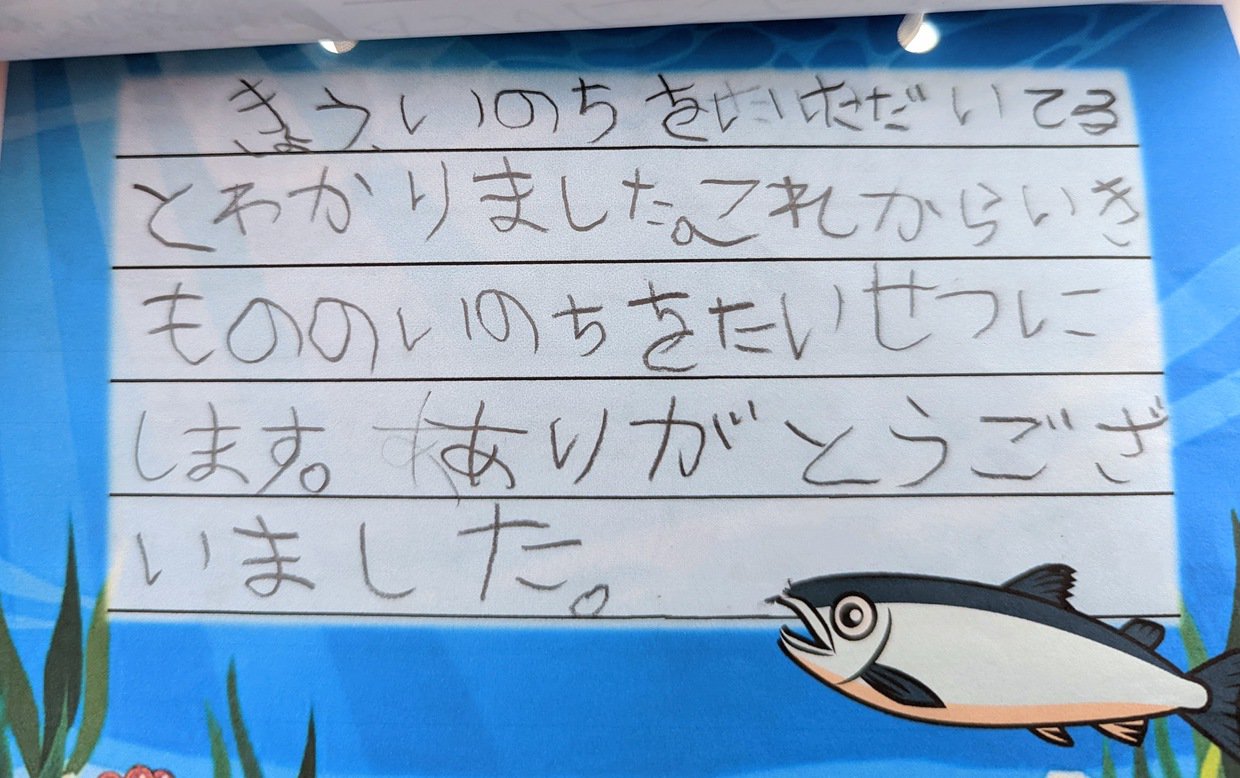 きょう、いのちをいただいてる
とわかりました。これからいき
もののいのちをたいせつに
します。ありがとうござ
いました。